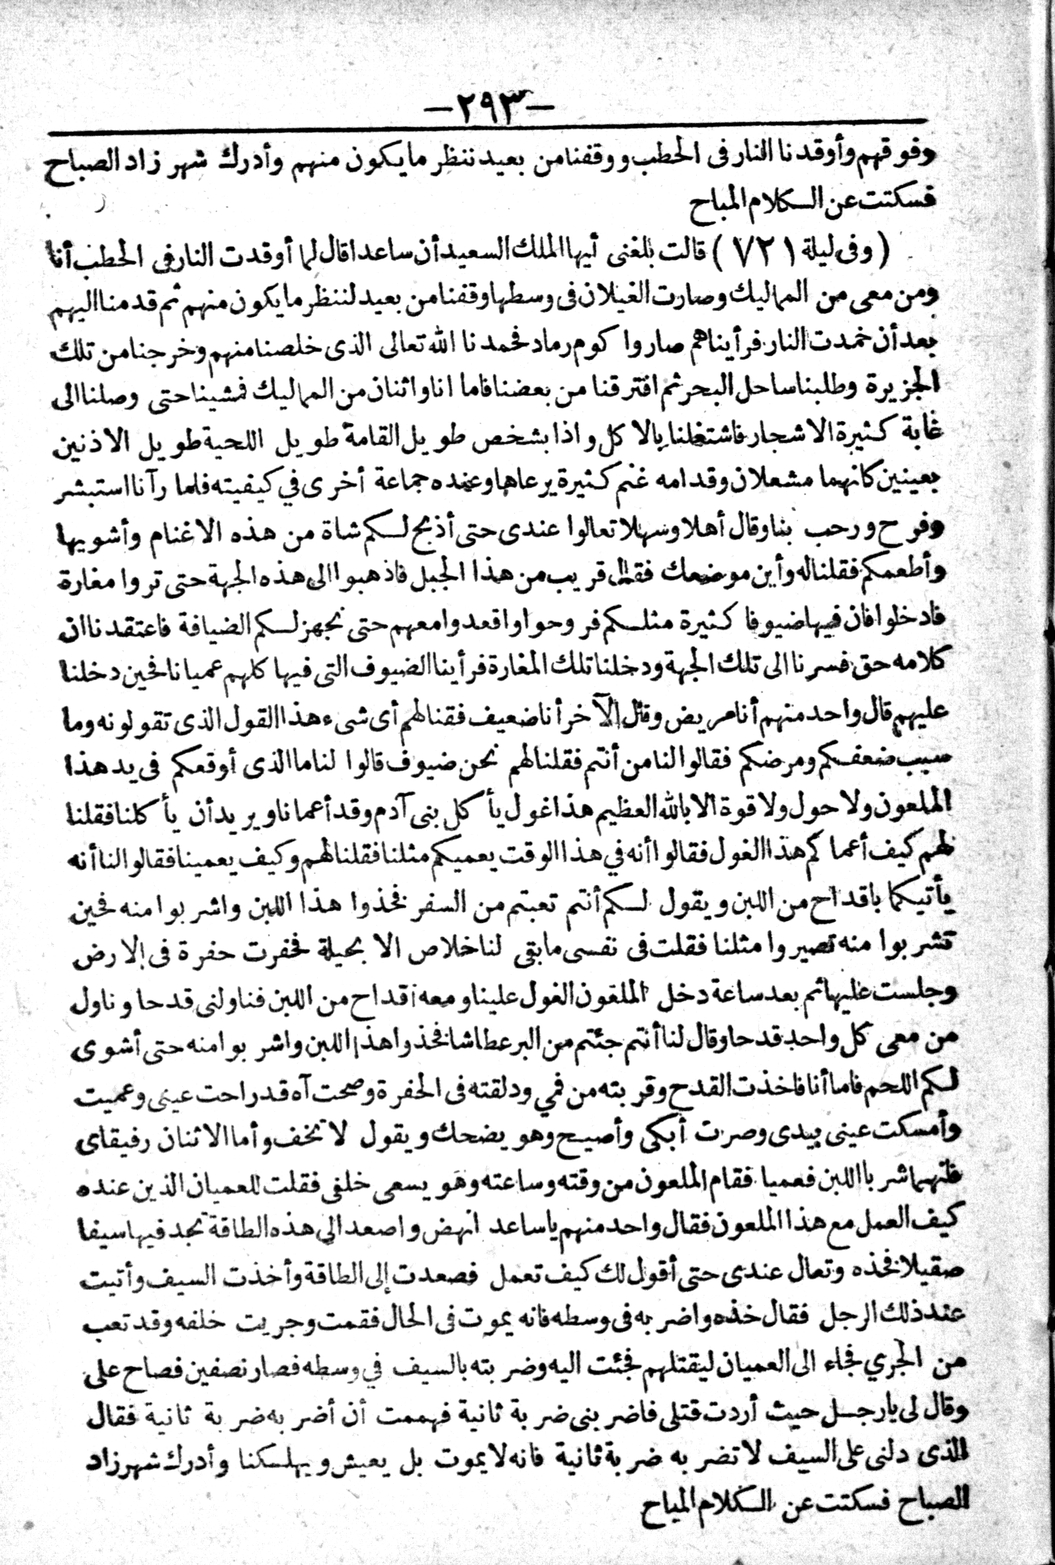 -٢٩٣-
وفوقهم وأوقدنا النار فى الحطب ووقفنا من بعيد ننظر ما يكون منهم وأدرك شهر زاد الصباح
فسكتت عن الكلام المباح
(وفى ليلة ٧٢١) قالت بلغنى أيها الملك السعيد أن ساعدا قال لما أوقدت النار في الحطب أنا
ومن معى من المماليك وصارت الغيلان فى وسطها وقفنا من بعيد لننظر ما يكون منهم ثم قدمنا اليهم
بعد أن خمدت النار فرأيناهم صاروا كوم رماد فحمدنا الله تعالى الذى خلصنا منهم وخرجنا من تلك
الجزيرة وطلبنا ساحل البحر ثم افترقنا من بعضنا فاما انا واثنان من المماليك فمشينا حتى وصلنا الى
غابة كثيرة الاشجار فاشتغلنا بالاكل واذا بشخص طويل القامة طويل اللحية طويل الاذنين
بعينين كانهما مشعلان وقدامه غنم كثيرة يرعاها وعنده جماعة أخرى في كيفيته فلما رآنا استبشر
وفرح ورحب بنا وقال أهلا وسهلا تعالوا عندى حتى أذبح لكم شاة من هذه الاغنام وأشويها
وأطعمكم فقلنا له وأين موضعك فقال قريب من هذا الجبل فاذهبوا الى هذه الجهة حتى تروا مغارة
فادخلوا فان فيها ضيوفا كثيرة مثلكم فروحوا واقعدوا معهم حتى نجهز لكم الضيافة فاعتقدنا ان
كلامه حق فسرنا الى تلك الجهة ودخلنا تلك المغارة فرأينا الضيوف التى فيها كلهم عميانا فحين دخلنا
عليهم قال واحد منهم أنا مريض وقال الآخر أنا ضعيف فقنا لهم أى شىء هذا القول الذى تقولونه وما
سبب ضعفكم ومرضكم فقالوا لنا من أنتم فقلنا لهم نحن ضيوف قالوا لنا ما الذى أوقعكم فى يد هذا
الملعون ولا حول ولا قوة الا بالله العظيم هذا غول يأكل بنى آدم وقد أعمانا ويريد أن يأكلنا فقلنا
لهم كيف أعماكم هذا الغول فقالوا أنه في هذا الوقت يعميكم مثلنا فقلنا لهم وكيف يعمينا فقالوا لنا أنه
يأتيكما باقداح من اللبن ويقول لكم أنتم تعبتم من السفر فخذوا هذا اللبن واشربوا منه فحين
تشربوا منه تصيروا مثلنا فقلت فى نفسى ما بقى لنا خلاص الا بحيلة فحفرت حفرة فى الارض
وجلست عليها ثم بعد ساعة دخل الملعون الغول علينا ومعه أقداح من اللبن فناولنى قدحا وناول
من معى كل واحد قدحا وقال لنا أنتم جئتم من البر عطاشا فخذوا هذا اللبن واشربوا منه حتى أشوى
لكم اللحم فاما أنا فاخذت القدح وقربته من في ودلقته فى الحفرة وصحت آه قد راحت عينى وعميت
وأمسكت عينى بيدى وصرت أبكى وأصيح وهو يضحك ويقول لا تخف وأما الاثنان رفيقاى
فانهما شربا اللبن فعميا فقام الملعون من وقته وساعته وهو يسعى خلفى فقلت للعميان الذين عنده
كيف العمل مع هذا الملعون فقال واحد منهم يا ساعد انهض واصعد الي هذه الطاقة تجد فيها سيفا
صقيلا فخذه وتعال عندى حتى أقول لك كيف تعمل فصعدت إلى الطاقة وأخذت السيف وأتيت
عند ذلك الرجل فقال خذه واضربه فى وسطه فانه يموت فى الحال فقمت وجريت خلفه وقد تعب
من الجري فجاء الى العميان ليقتلهم فجئت اليه وضربته بالسيف في وسطه فصار نصفين فصاح على
وقال لى يا رجل حيث أردت قتلى فاضربنى ضربة ثانية فهممت أن أضربه ضربة ثانية فقال
الذى دلنى على السيف لا تضربه ضربة ثانية فانه لا يموت بل يعيش ويهلكنا وأدرك شهر زاد
الصباح فسكتت عن الكلام المباح